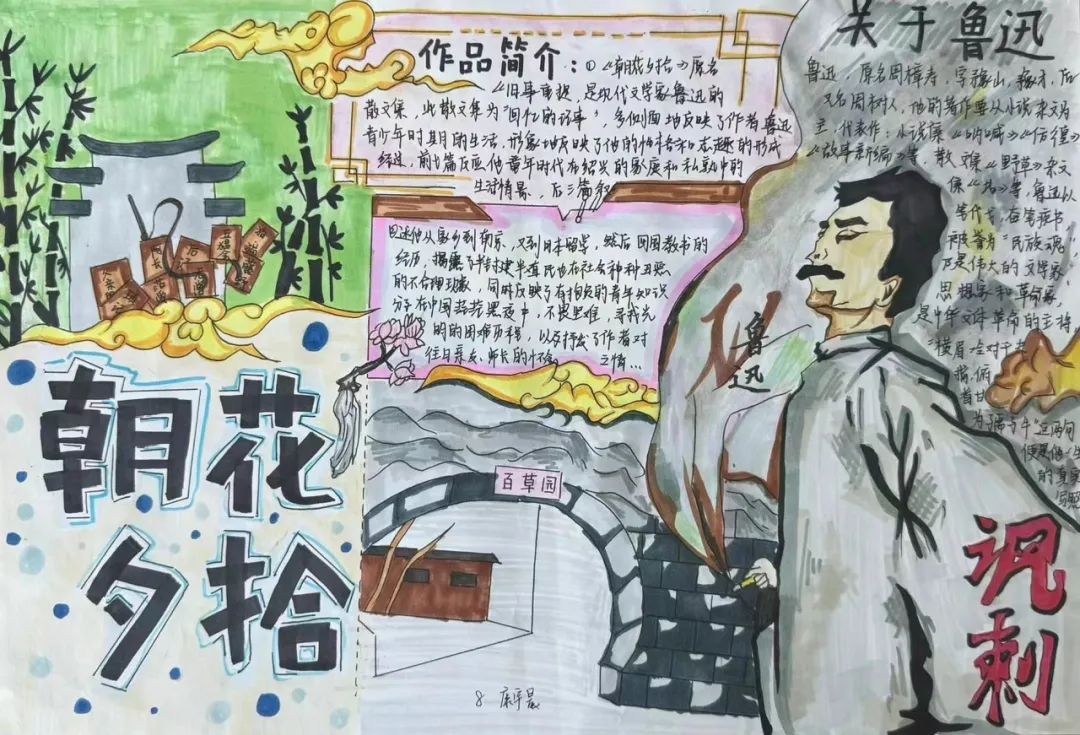 朝花
夕拾
作品简介：①《朝花夕拾》原名
《旧事重提》，是现代文学家鲁迅的
散文集，此散文集为“回忆的记事”，多侧面地反映了作者鲁迅
青少年时期的生活，形象地反映了他的性格和志趣的形成
经过，前七篇反应他童年时代在绍兴的家庭和私塾中的
生活情景，后三篇叙
从家乡到南京，又到日本留学，然后回国教书的
经历，揭露了半封建半殖民地社会种种丑恶
的不合理现象，同时反映了有抱负的青年知识
分子在中国茫茫黑夜中，不畏黑难，寻找光
的的困难历程，以及抒发了作者对
往日亲友、师长的不 之情…
百草园
鲁
迅
8
关于鲁迅
鲁迅，原名周樟寿，字豫山，豫才，后
又名周树人，他的著作要从小说杂文为
主，代表作：小说集《呐喊》《彷徨》
《故事新编》等，散文集《野草》杂文
集 等，鲁迅以
笔代戈，奋笔疾书，
被誉为“民族魂”，
是伟大的文学家
思想家和革命家，
是中华文体革命的主将
“横眉冷对千
指，俯
首甘
为孺子牛”这两句
便是他一生
的真实
写照
讽
刺